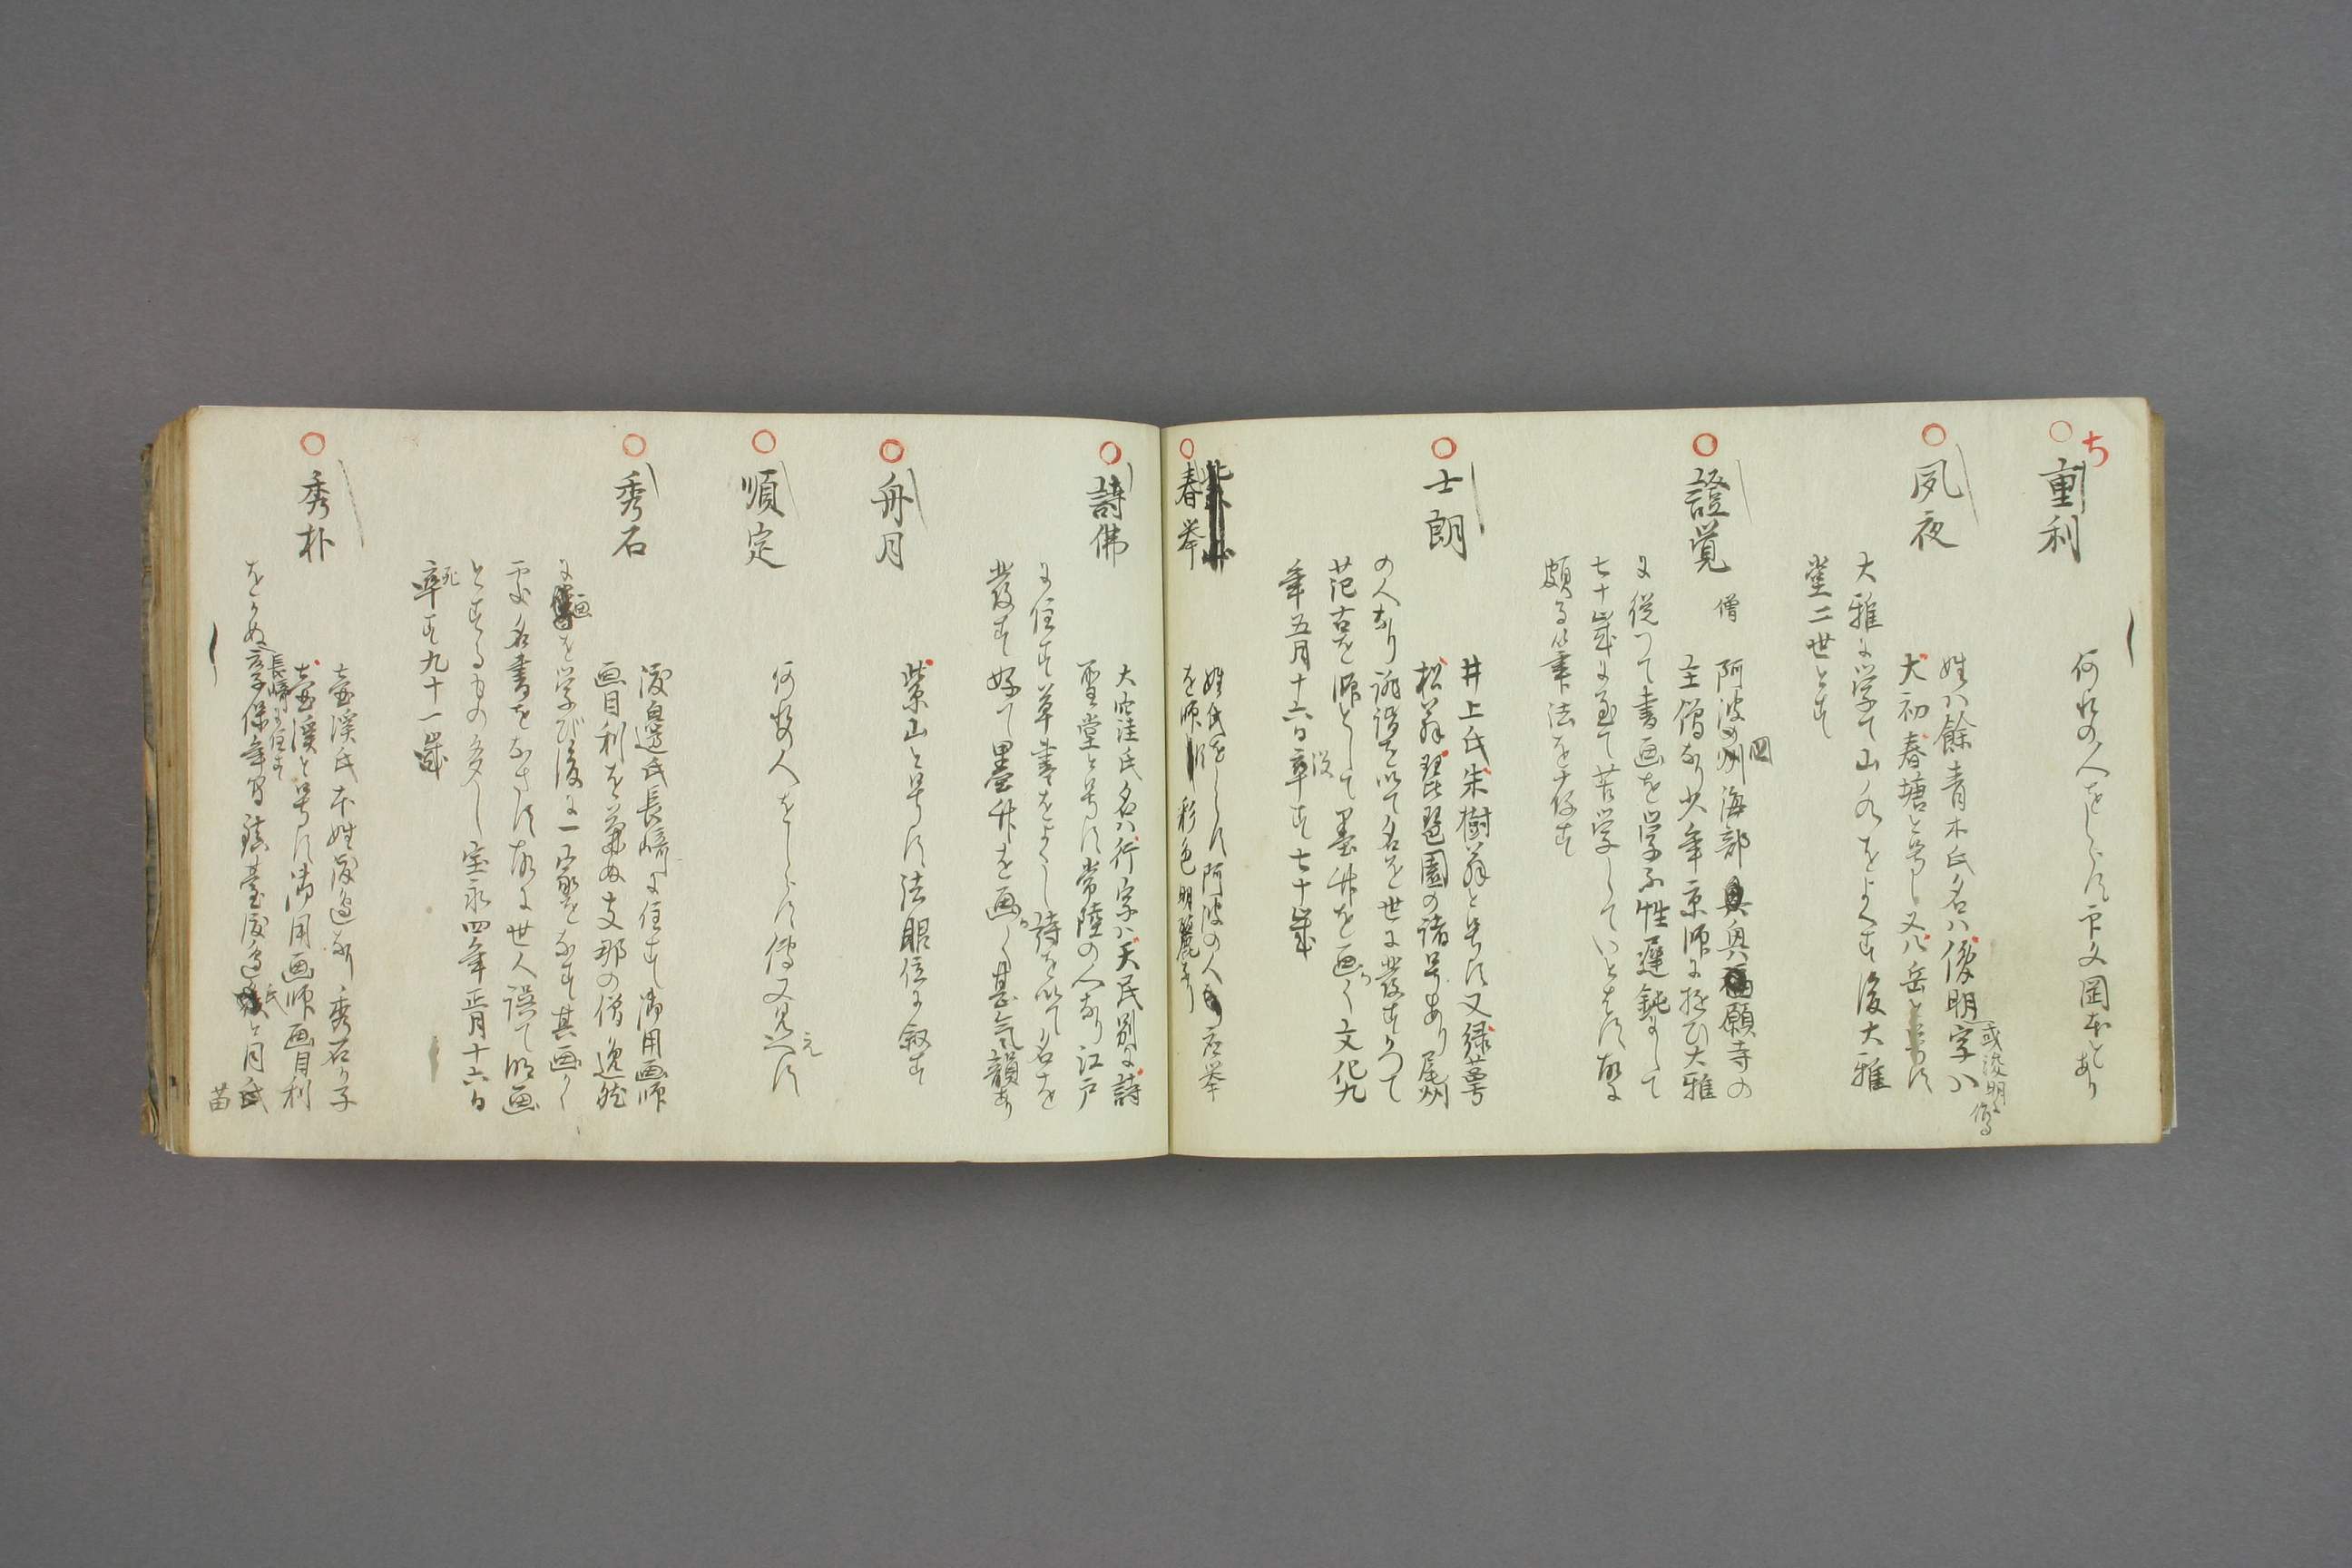 ち
重利
何処の人をしらす下文図本にあり
夙夜
姓ハ餘青木氏名ハ俊明字ハ
或浚明に作る
大初春塘と号し又八岳と号す
大雅に学て山水をよくす後大雅
堂二世とす
證覚
僧
阿波の国海部奥願寺の
主僧なり少年京師に遊ひ大雅
に従つて書画を学ふ性遅鈍にして
七十歳に至て苦学していとはす故に
頗る筆法を存す
士朗
井上氏朱樹翁と号す又緑萼
松翁琵琶園の諸号あり尾州
の人なり誹諧を以て名を世に発すかつて
范古を師として墨竹を画く文化九
年五月十六日卒す七十歳
没
春挙
姓氏をしらす阿波の人応挙
を師とし彩色明麗なり
詩佛
大窪氏名ハ行字ハ天民別に詩
聖堂と号す常陸の人なり江戸
に住す草書をよくし詩を以て名を
発す好て墨竹を画く甚気韻あり
舟月
柴山と号す法眼位に叙す
順定
何処の人をしらす傳又見へす
秀石
渡邉氏長崎に住す御用画師
画目利を兼ぬ支那の僧逸然
に画を学び後に一家をなす其画く
處名書をなさす故に世人誤て明画
とするもの多し宝永四年正月十六日
卒す九十一歳
死
秀朴
壷溪氏本姓渡邉なり秀石の子
壷溪と号す御用画師画目利
をかぬ享保年間鎮臺渡邉氏と同氏
長崎に住す
苗